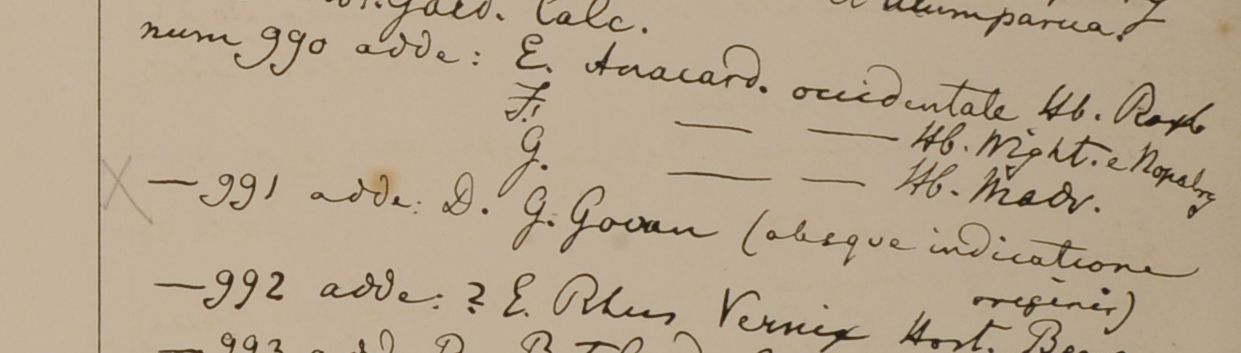 Calc.
num 990 adde: E. Anacard. occidentale Hb. Roxb
F. — — Hb. Wight. e
G. — — Hb. Madr.
— 991 adde: D. G. Govan (absque indicatione
originis)
— 992 adde: ? E. Rhus Vernix Hort.
— 993